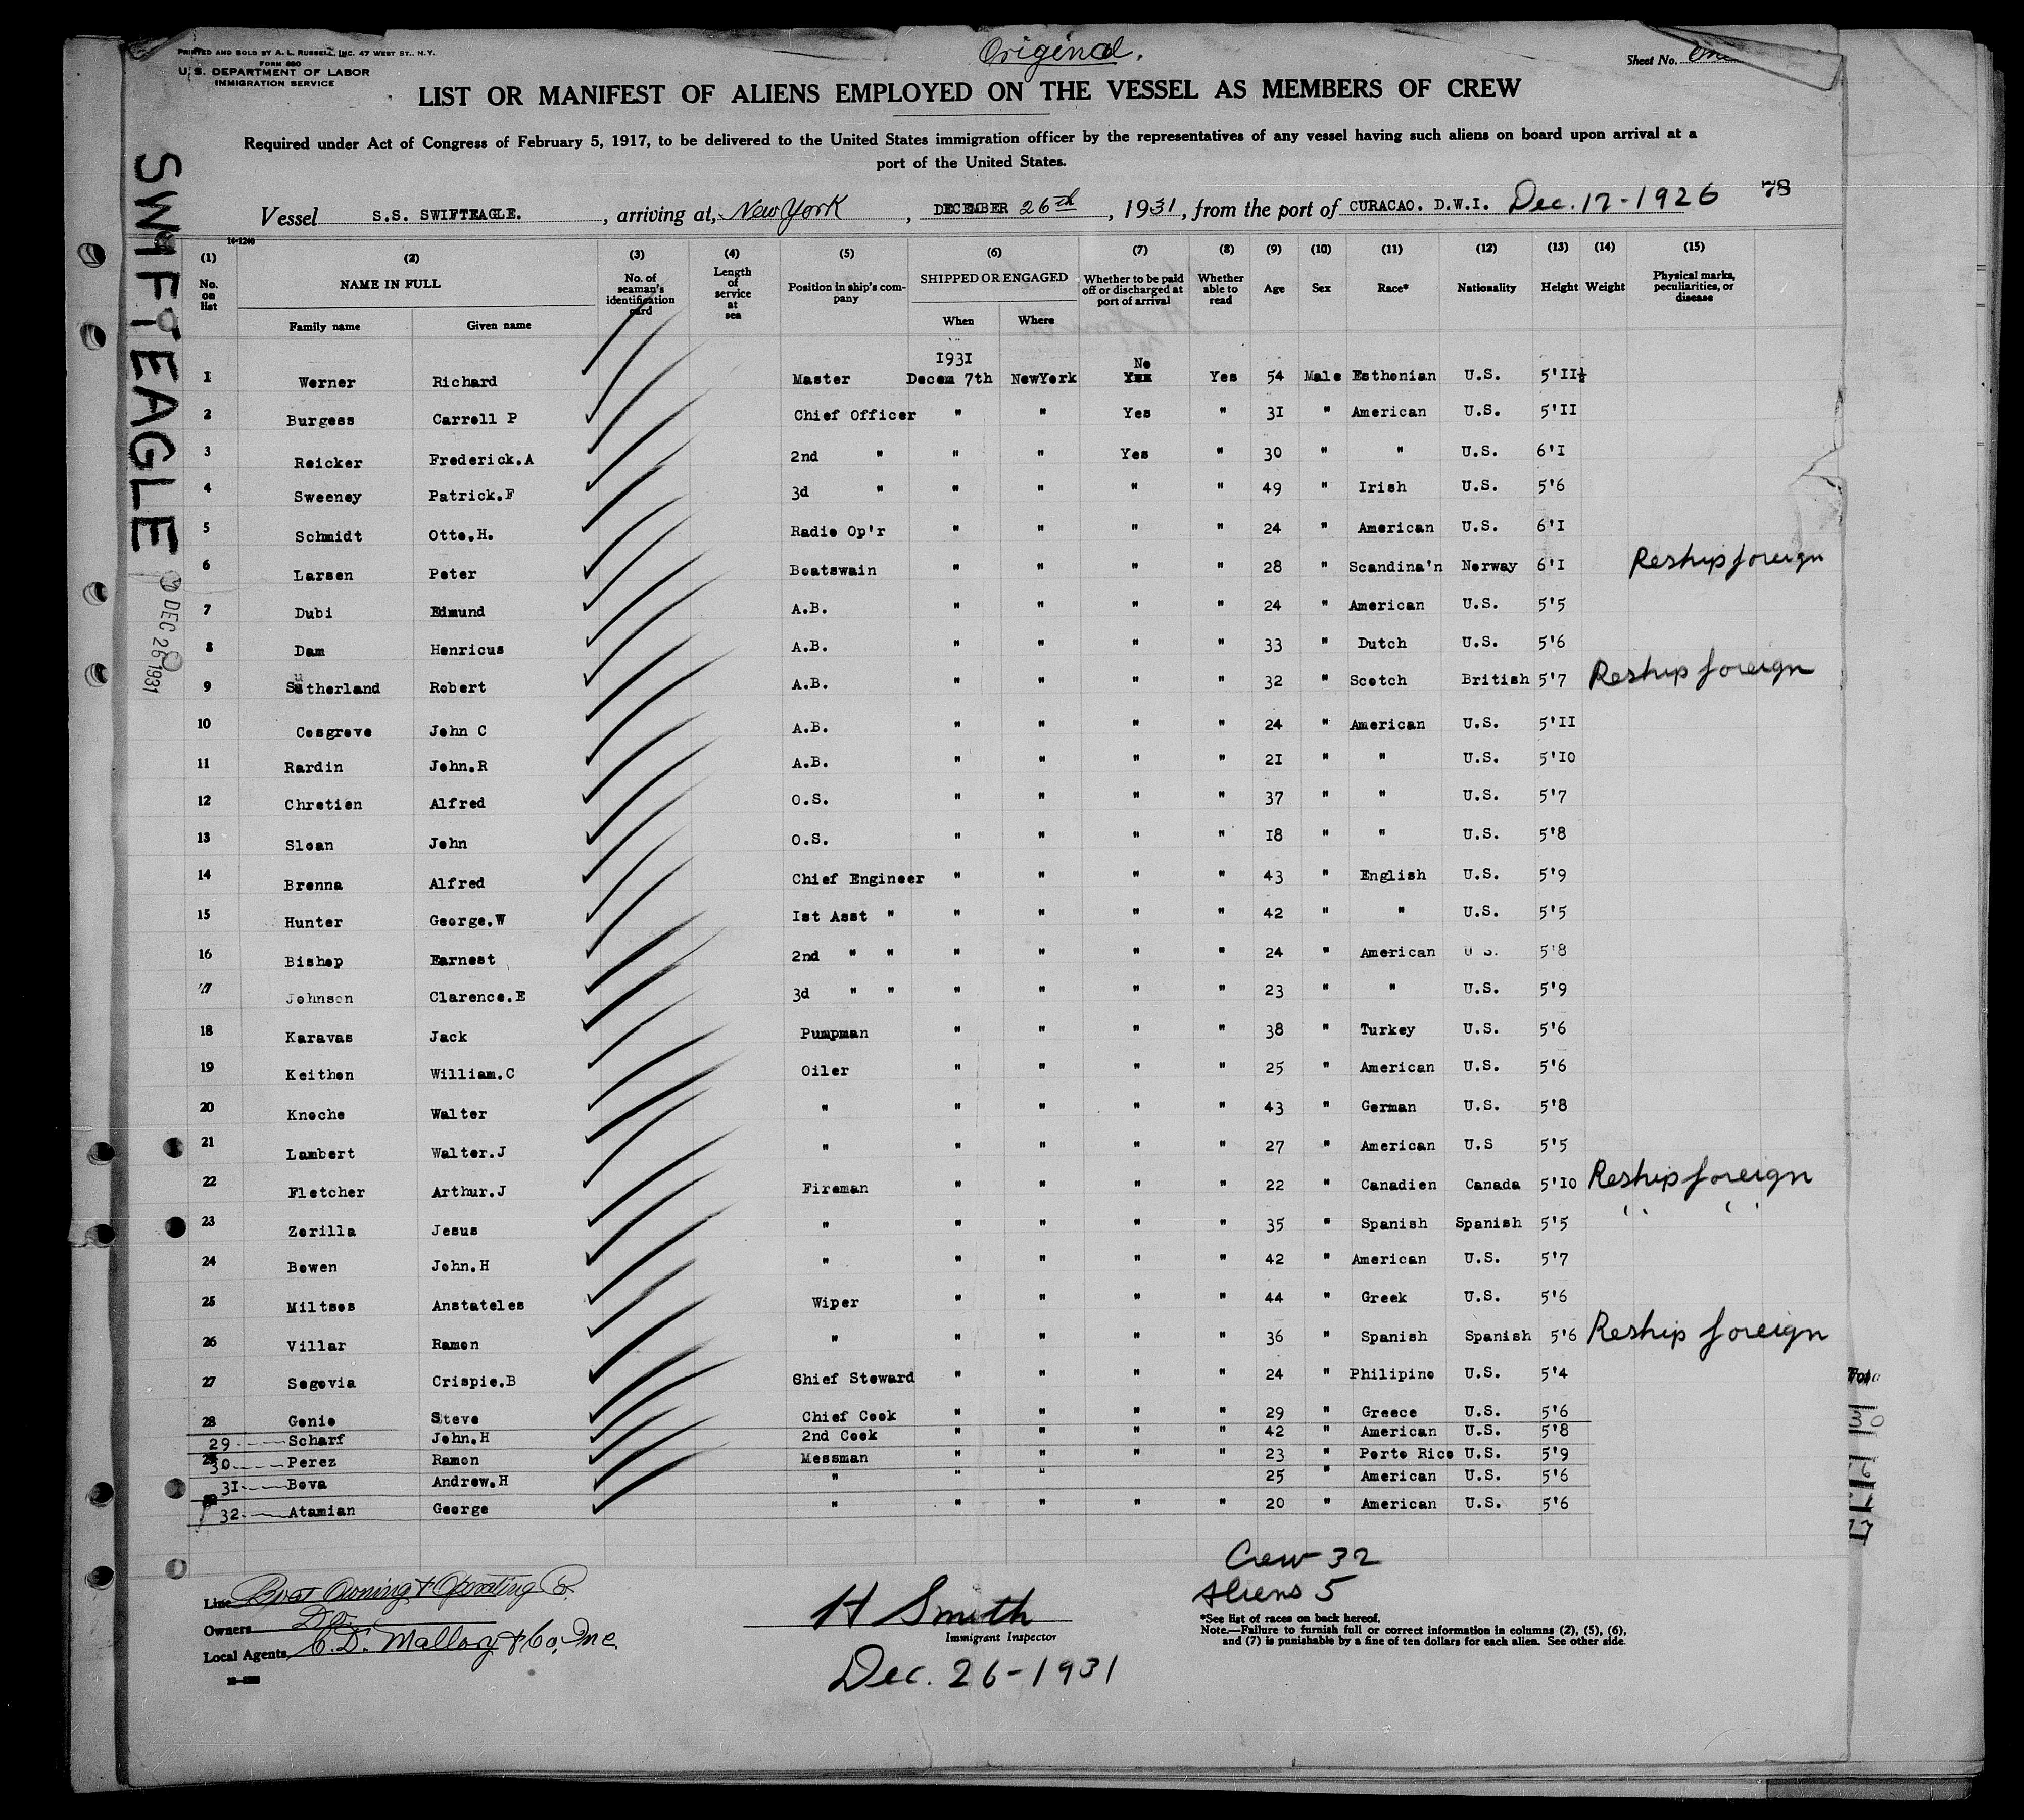 Original.
PRINTED AND SOLD BY A. L. RUSSELL, INC. 47 WEST ST., N.Y.
FORM 680
U. S. DEPARTMENT OF LABOR
IMMIGRATION SERVICE
Sheet No. One
LIST OR MANIFEST OF ALIENS EMPLOYED ON THE VESSEL AS MEMBERS OF CREW
Required under Act of Congress of February 5, 1917, to be delivered to the United States immigration officer by the representatives of any vessel having such aliens on board upon arrival at a
port of the United States.
78
Vessel S.S. SWIFTEAGLE. , arriving at, New York , DECEMBER 26th , 1931, from the port of CURACAO. D.W.I. Dec. 17-1926
SWIFTEAGLE
DEC 26 1931
14-1240
(1) No. on list (2) NAME IN FULL Family name Given name (3) No. of seaman's identification card (4) Length of service at sea (5) Position in ship's company (6) SHIPPED OR ENGAGED When Where (7) Whether to be paid off or discharged at port of arrival (8) Whether able to read (9) Age (10) Sex (11) Race* (12) Nationality (13) Height (14) Weight (15) Physical marks, peculiarities, or disease
1931 No
1 Werner Richard Master Decem 7th NewYork Yes Yes 54 Male Esthonian U.S. 5'11½
2 Burgess Carroll P Chief Officer " " Yes " 31 " American U.S. 5'11
3 Reicker Frederick.A 2nd " " " Yes " 30 " " U.S. 6'1
4 Sweeney Patrick.F 3d " " " " " 49 " Irish U.S. 5'6
5 Schmidt Otto.H. Radio Op'r " " " " 24 " American U.S. 6'1
6 Larsen Peter Boatswain " " " " 28 " Scandina'n Norway 6'1 Reship foreign
7 Dubi Edmund A.B. " " " " 24 " American U.S. 5'5
8 Dam Henricus A.B. " " " " 33 " Dutch U.S. 5'6
9 Sutherland Robert A.B. " " " " 32 " Scotch British 5'7 Reship foreign
10 Cosgrove John C A.B. " " " " 24 " American U.S. 5'11
11 Rardin John.R A.B. " " " " 21 " " U.S. 5'10
12 Chretien Alfred O.S. " " " " 37 " " U.S. 5'7
13 Sloan John O.S. " " " " 18 " " U.S. 5'8
14 Brenna Alfred Chief Engineer " " " " 43 " English U.S. 5'9
15 Hunter George.W 1st Asst " " " " " 42 " " U.S. 5'5
16 Bishop Earnest 2nd " " " " " " 24 " American U.S. 5'8
17 Johnson Clarence.E 3d " " " " " " 23 " " U.S. 5'9
18 Karavas Jack Pumpman " " " " 38 " Turkey U.S. 5'6
19 Keithen William.C Oiler " " " " 25 " American U.S. 5'6
20 Knoche Walter " " " " " 43 " German U.S. 5'8
21 Lambert Walter.J " " " " " 27 " American U.S 5'5
22 Fletcher Arthur.J Fireman " " " " 22 " Canadien Canada 5'10 Reship foreign
23 Zorilla Jesus " " " " " 35 " Spanish Spanish 5'5 " "
24 Bowen John.H " " " " " 42 " American U.S. 5'7
25 Miltses Anstateles Wiper " " " " 44 " Greek U.S. 5'6
26 Villar Ramon " " " " " 36 " Spanish Spanish 5'6 Reship foreign
27 Segovia Crispie.B Chief Steward " " " " 24 " Philipine U.S. 5'4
28 Genie Steve Chief Cook " " " " 29 " Greece U.S. 5'6
29 Scharf John.H 2nd Cook " " " " 42 " American U.S. 5'8
30 Perez Ramon Messman " " " " 23 " Porto Rico U.S. 5'9
31 Bova Andrew.H " " " 25 " American U.S. 5'6
32 Atamian George " " " " " 20 " American U.S. 5'6
Crew 32
Aliens 5
Line Boat Owning & Operating Co.
Owners Do.
Local Agents C. D. Mallory & Co, Inc.
H Smith
Immigrant Inspector
Dec. 26-1931
*See list of races on back hereof.
Note.—Failure to furnish full or correct information in columns (2), (5), (6),
and (7) is punishable by a fine of ten dollars for each alien. See other side.